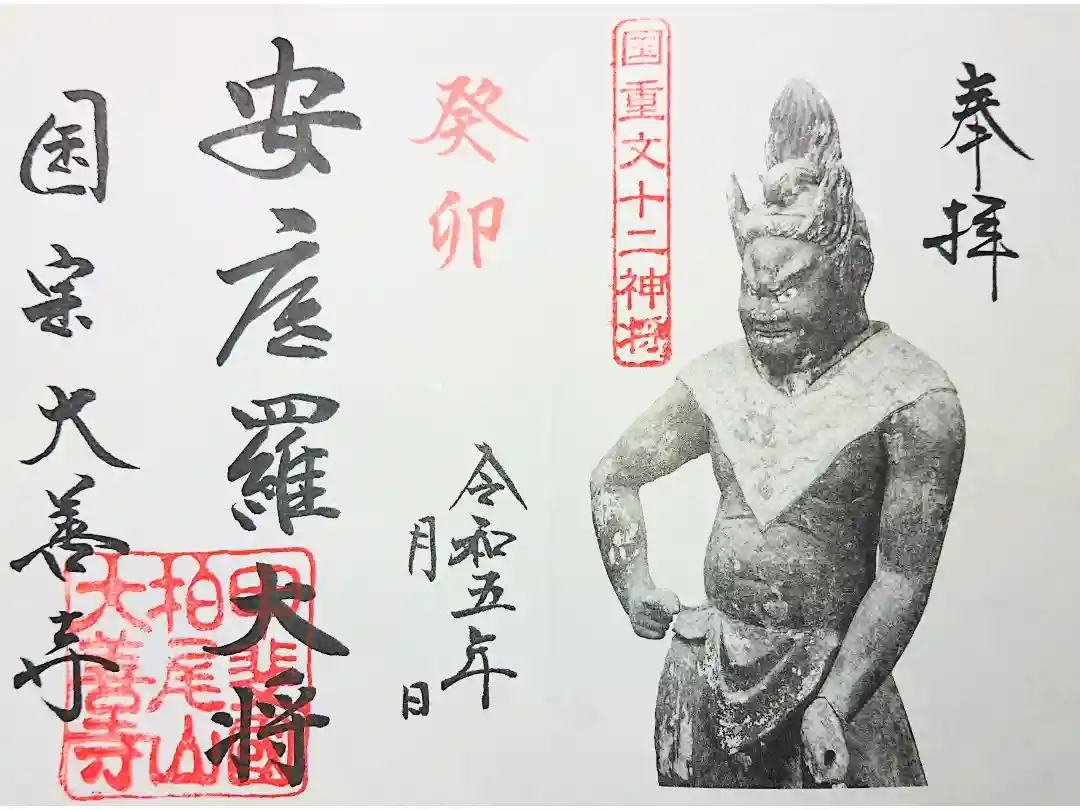 奉拝
國重文十二神将
癸卯
令和五年
月 日
安底羅大将
国宝大善寺
甲斐國
柏尾山
大善寺